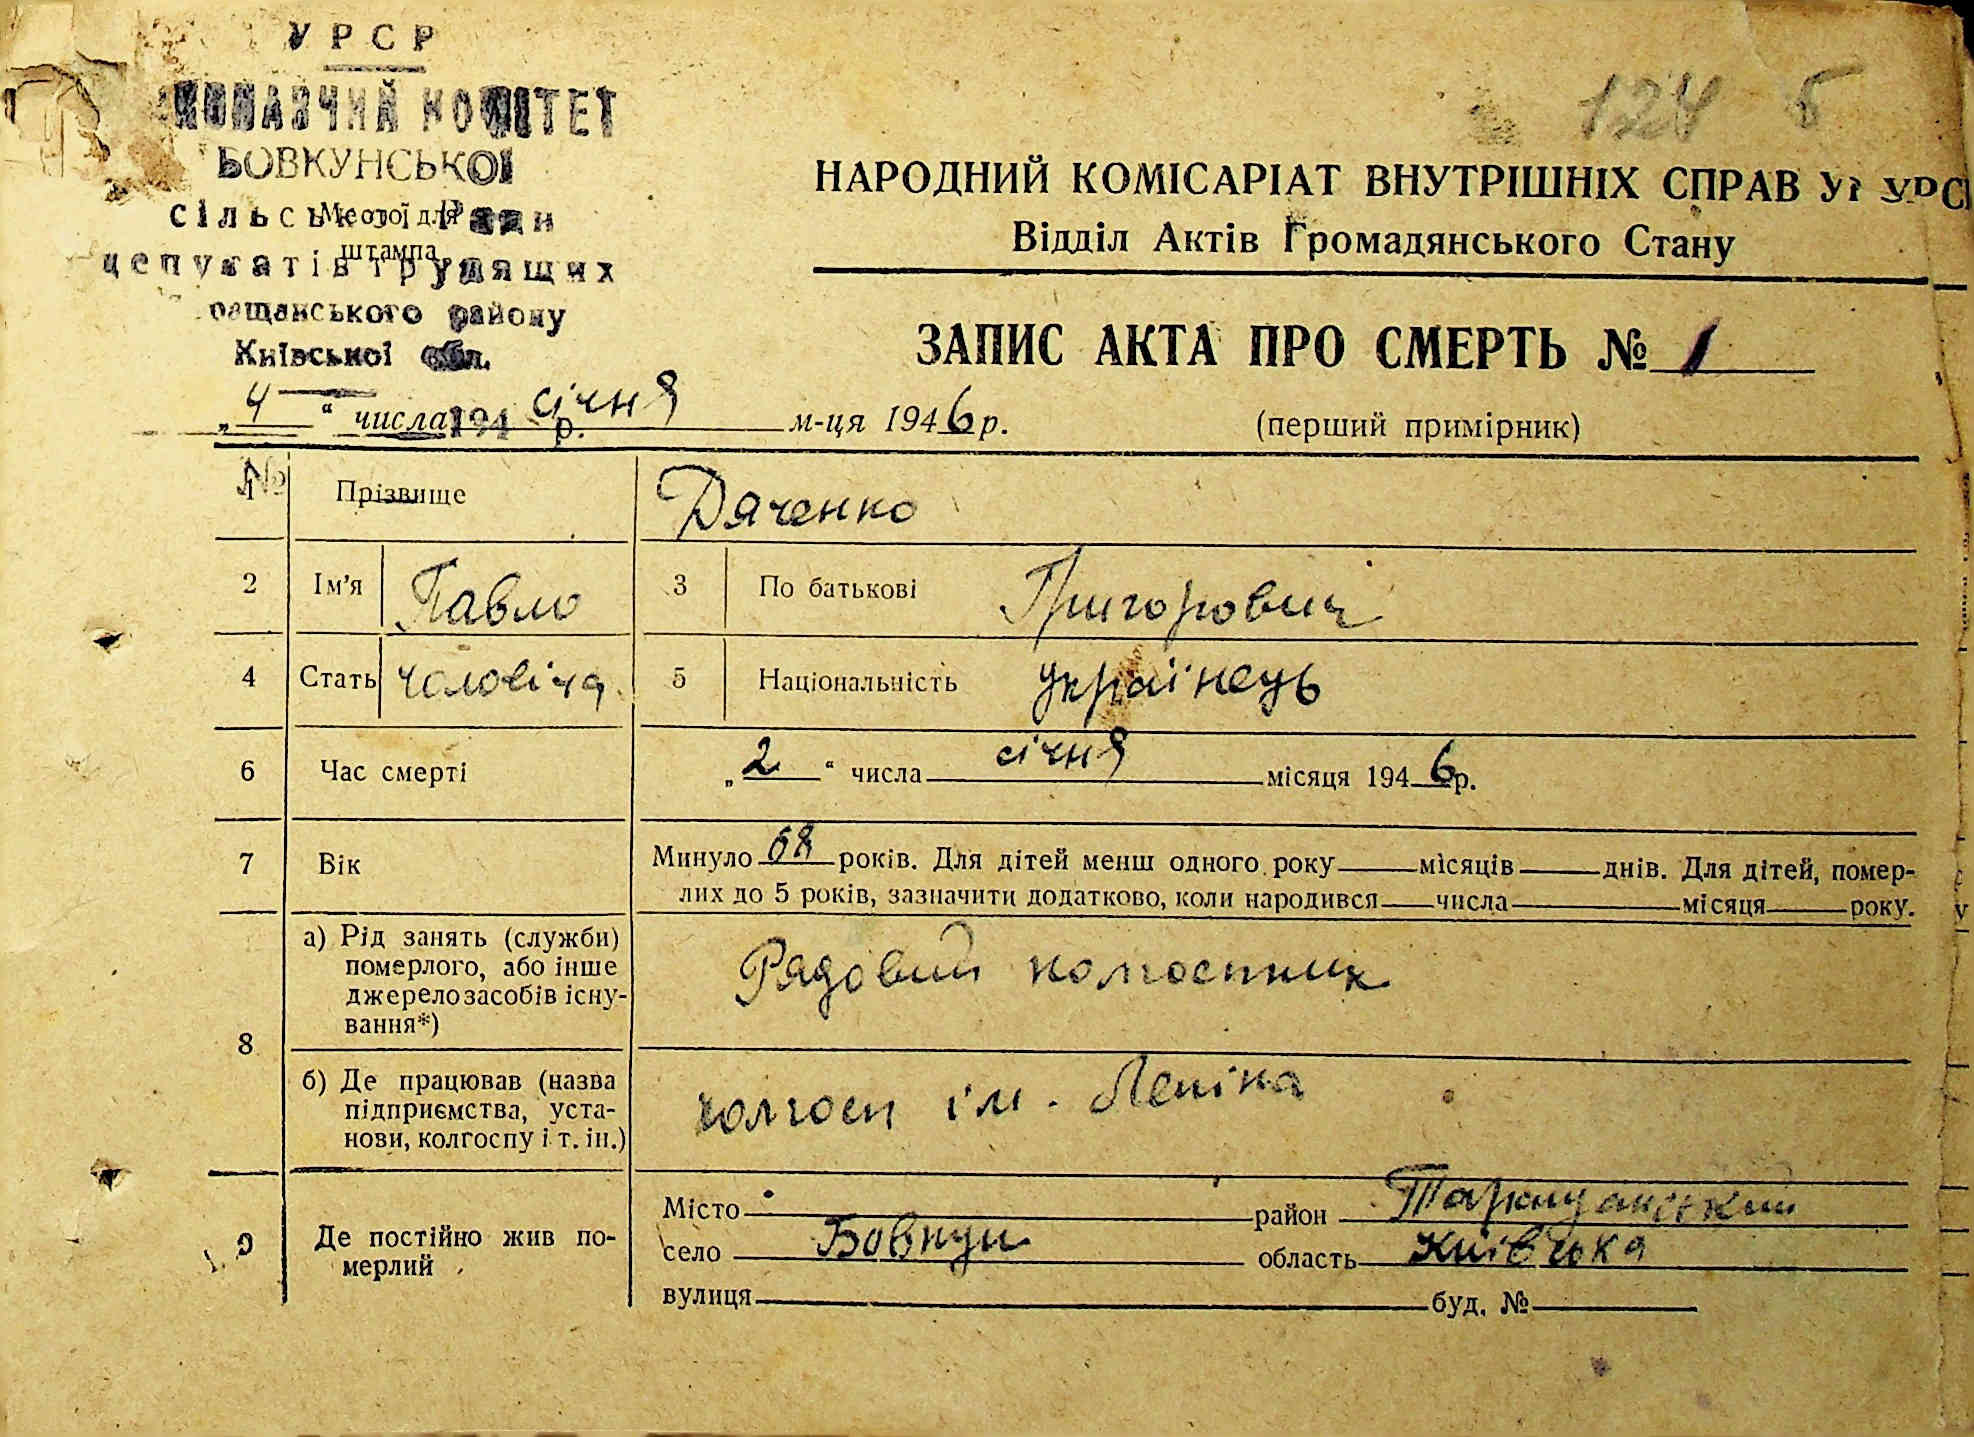 УРСР
КОМІТЕТ
БОВКУНСЬКОЇ
сільської Ради
депутатів трудящих
ращанського району
Київської обл.
Місце для
штампа
124 б
НАРОДНИЙ КОМІСАРІАТ ВНУТРІШНІХ СПРАВ УРСР
Відділ Актів Громадянського Стану
ЗАПИС АКТА ПРО СМЕРТЬ № 1
„4“ числа січня м-ця 1946 р.
194 р.
(перший примірник)
№
1 Прізвище Дяченко
2 Ім’я Павло 3 По батькові Григорович
4 Стать чоловіча 5 Національність українець
6 Час смерті „2“ числа січня місяця 1946 р.
7 Вік Минуло 68 років. Для дітей менш одного року місяців днів. Для дітей, помер-
лих до 5 років, зазначити додатково, коли народився числа місяця року.
8
а) Рід занять (служби)
померлого, або інше
джерело засобів існу-
вання*)
Рядовий колгоспник
б) Де працював (назва
підприємства, уста-
нови, колгоспу і т. ін.)
колгосп ім. Леніна
9 Де постійно жив по-
мерлий
Місто район Таращанський
село Бовкун область Київська
вулиця буд. №